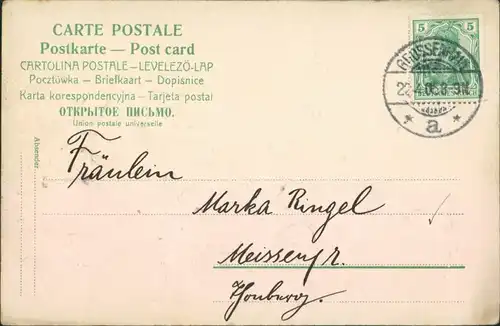 CARTE POSTALE
Postkarte — Post card
CARTOLINA POSTALE – LEVELEZŐ-LAP
Pocztówka – Briefkaart – Dopisnice
Karta korespondencyjna – Tarjeta postal
ОТКРЫТОЕ ПИСЬМО.
Union postale universelle
Absender
5 5
22.4.0
* a *
Fräulein
Marka Ringel